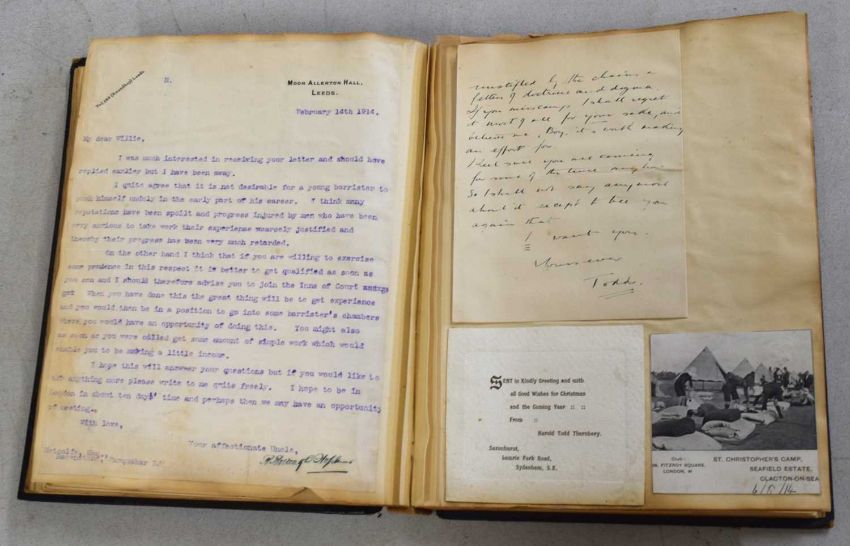 Tel. 198 (Roundhay) Leeds.
MOOR ALLERTON HALL,
LEEDS.
February 14th 1914.
My dear Willie,
I was much interested in receiving your letter and should have
replied earlier but I have been away.
I quite agree that it is not desirable for a young barrister to
push himself unduly in the early part of his career. I think many
reputations have been spoilt and progress injured by men who have been
very anxious to take work their experience scarcely justified and
thereby their progress has been very much retarded.
On the other hand I think that if you are willing to exercise
some prudence in this respect it is better to get qualified as soon as
you can and I should therefore advise you to join the Inns of Court
get When you have done this the great thing will be to get experience
and you would then be in a position to go into some barrister's chambers
where you would have an opportunity of doing this. You might also
as soon as you were called get some amount of simple work which would
enable you to be making a little income.
I hope this will answer your questions but if you would like to
ask anything more please write to me quite freely. I hope to be in
London in about ten days' time and perhaps then we may have an opportunity
of meeting.
With love,
Your affectionate Uncle,
Metcalfe, Esq.
mystified by the chains &
fetters of doctrine and dogma
If you miss camp I shall regret
it most of all for your sake, and
believe me, Boy, it's worth making
an effort for.
I feel sure you are coming
for some of the time anyhow
So I shall not say any more
about it except to tell you
again that
I want you.
Yours ever
Todd.
SENT in Kindly Greeting and with
all Good Wishes for Christmas
and the Coming Year :: ::
From
Harold Todd Thornbery.
Laurie Park Road,
Sydenham, S.E.
Club:
FITZROY SQUARE,
LONDON, W
ST. CHRISTOPHER'S CAMP,
SEAFIELD ESTATE,
CLACTON-ON-SEA